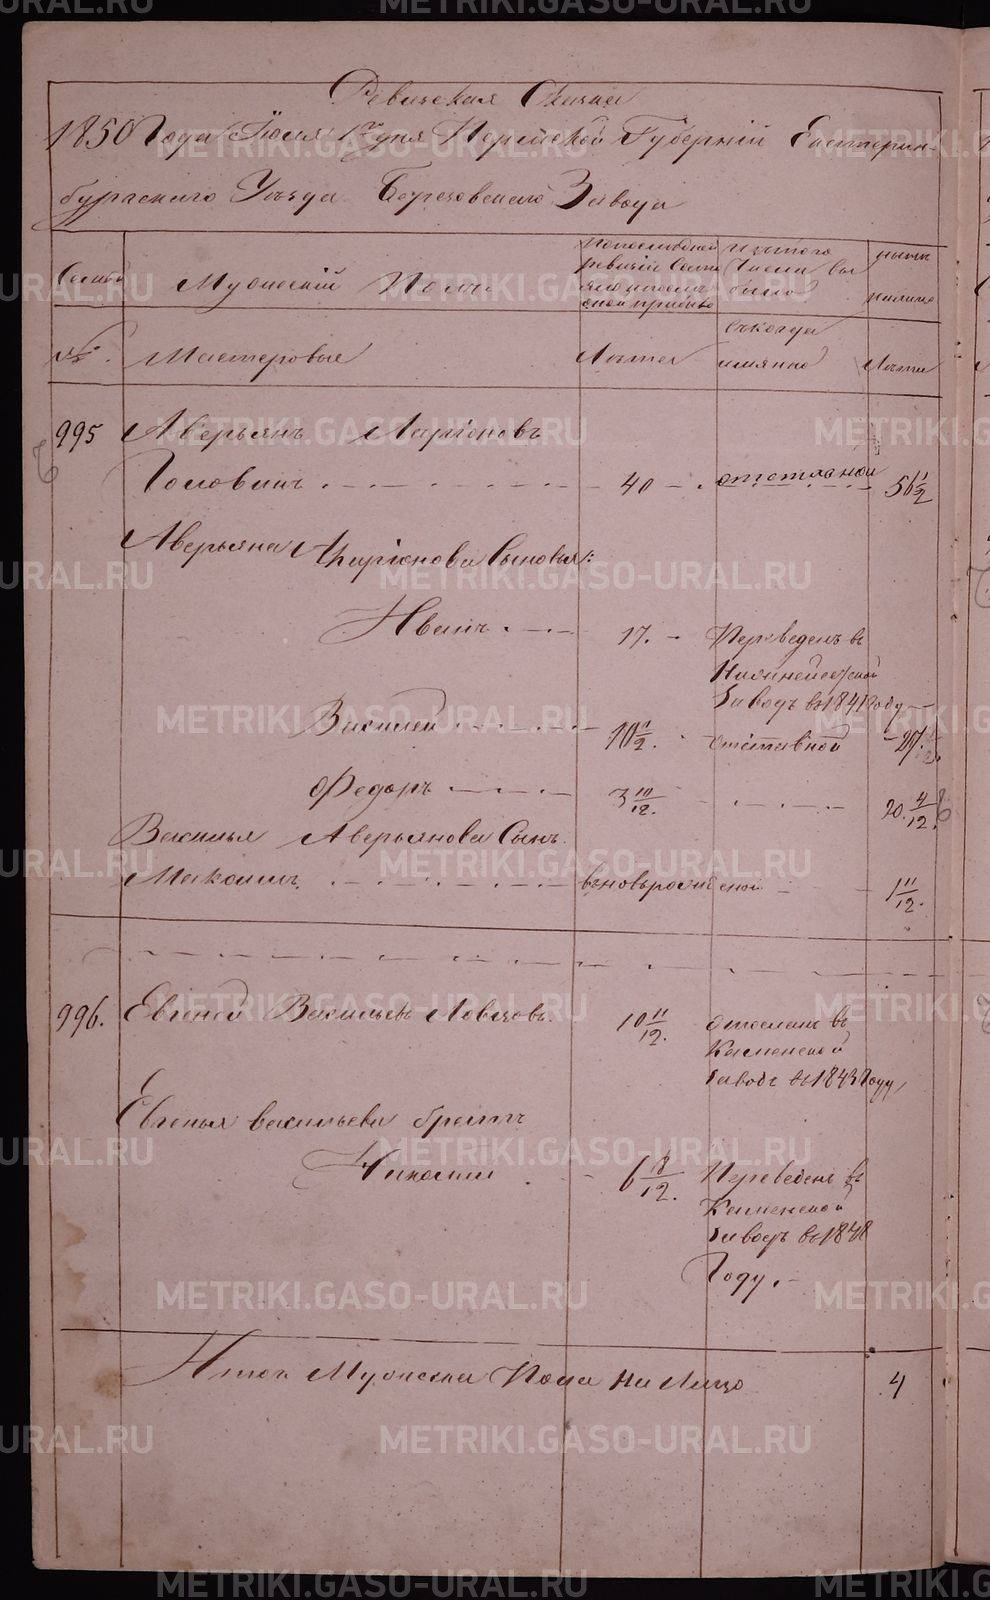 Ревижская Сказка
1850 Года Июля 1го дня Пермской Губерній Екатерин-
бургскаго Уезда Березовскаго Завода
Семьи Мужескій Полъ По последней ревизій состояло и после оной прибыло Изъ того Числа вы было ныне налицо
№. Мастеровые Лета Съ когда имянно Лета
995 Аверьянъ Ларіоновъ
Головинъ 40 отставной 56 11/12
Аверьяна Ларіонова Сыновья:
Иванъ 17. Переведенъ въ
Нижнейсетской
Заводъ въ 1841 году
Василей 10 11/12. отставной 27.
Федоръ 3 10/12. 20. 4/12.
Василья Аверьянова Сынъ.
Максимъ вновьрожденной 1 11/12.
996. Евгеней Васильевъ Ловцовъ. 10 11/12. отосланъ въ
Каменской
Заводъ въ 1843 Году
Евгенья васильева братъ
Николай 6 8/12. Переведенъ въ
Каменской
Заводъ въ 1848
Году.
Итого Мужеска Пола на Лицо 4
METRIKI.GASO-URAL.RU